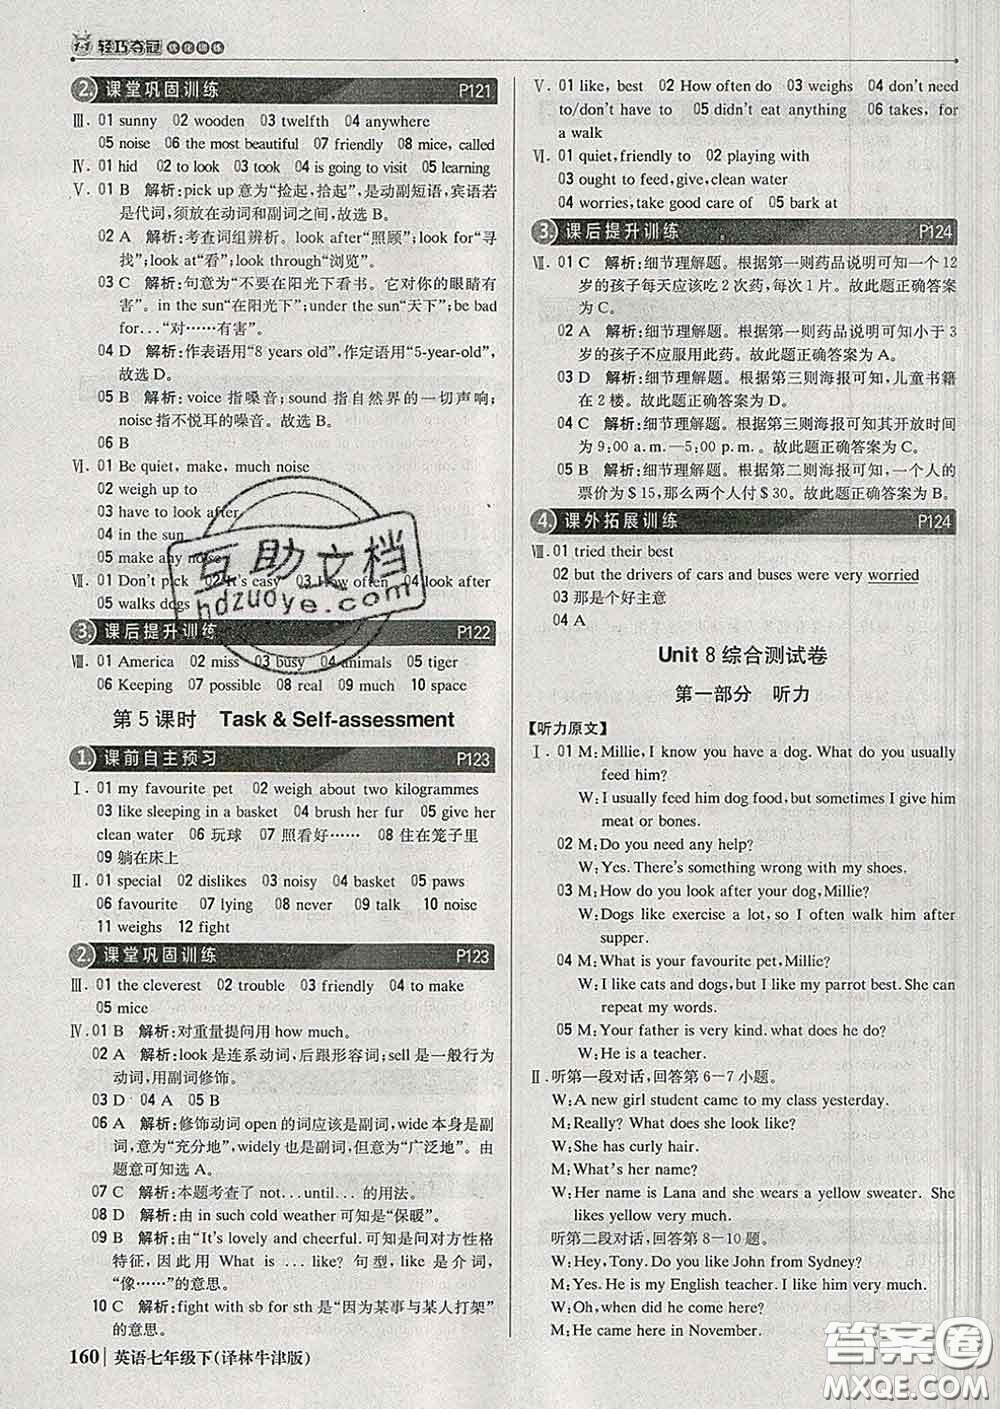 1+1 轻巧夺冠 优化训练
2. 课堂巩固训练 P121
Ⅲ. 01 sunny 02 wooden 03 twelfth 04 anywhere
05 noise 06 the most beautiful 07 friendly 08 mice, called
Ⅳ. 01 hid 02 to look 03 took 04 is going to visit 05 learning
Ⅴ. 01 B 解析:pick up 意为“捡起,拾起”,是动副短语,宾语若
是代词,须放在动词和副词之间,故选 B。
02 A 解析:考查词组辨析。look after“照顾”;look for“寻
找”;look at“看”;look through“浏览”。
03 C 解析:句意为“不要在阳光下看书。它对你的眼睛有
害”。in the sun“在阳光下”;under the sun“天下”;be bad
for...“对……有害”。
04 D 解析:作表语用“8 years old”,作定语用“5-year-old”,
故选 D。
05 B 解析:voice 指嗓音;sound 指自然界的一切声响;
noise 指不悦耳的噪音。故选 B。
06 B
Ⅵ. 01 Be quiet, make, much noise
02 weigh up to
03 have to look after
04 in the sun
05 make any noise
Ⅶ. 01 Don't pick 02 It's easy 03 How often 04 look after
05 walks dogs
3. 课后提升训练 P122
Ⅷ. 01 America 02 miss 03 busy 04 animals 05 tiger
06 Keeping 07 possible 08 real 09 much 10 space
第 5 课时 Task & Self-assessment
1. 课前自主预习 P123
Ⅰ. 01 my favourite pet 02 weigh about two kilogrammes
03 like sleeping in a basket 04 brush her fur 05 give her
clean water 06 玩球 07 照看好…… 08 住在笼子里
09 躺在床上
Ⅱ. 01 special 02 dislikes 03 noisy 04 basket 05 paws
06 favourite 07 lying 08 never 09 talk 10 noise
11 weighs 12 fight
2. 课堂巩固训练 P123
Ⅲ. 01 the cleverest 02 trouble 03 friendly 04 to make
05 mice
Ⅳ. 01 B 解析:对重量提问用 how much。
02 A 解析:look 是连系动词,后跟形容词;sell 是一般行为
动词,用副词修饰。
03 D 04 A 05 B
06 A 解析:修饰动词 open 的词应该是副词,wide 本身是副
词,意为“充分地”,widely 也是副词,但意为“广泛地”。由
题意可知选 A。
07 C 解析:本题考查了 not...until... 的用法。
08 D 解析:由 in such cold weather 可知是“保暖”。
09 B 解析:由“It's lovely and cheerful.可知是问对方性格
特征,因此用 What is ... like? 句型,like 是介词,
“像……”的意思。
10 C 解析:fight with sb for sth 是“因为某事与某人打架”
的意思。
160 英语七年级下(译林牛津版)
Ⅴ. 01 like, best 02 How often do 03 weighs 04 don't need
to/don't have to 05 didn't eat anything 06 takes, for
a walk
Ⅵ. 01 quiet,friendly to 02 playing with
03 ought to feed,give,clean water
04 worries,take good care of 05 bark at
3. 课后提升训练 P124
Ⅶ. 01 C 解析:细节理解题。根据第一则药品说明可知一个 12
岁的孩子每天应该吃 2 次药,每次 1 片。故此题正确答案
为 C。
02 A 解析:细节理解题。根据第一则药品说明可知小于 3
岁的孩子不应服用此药。故此题正确答案为 A。
03 D 解析:细节理解题。根据第三则海报可知,儿童书籍
在 2 楼。故此题正确答案为 D。
04 C 解析:细节理解题。根据第三则海报可知其开放时间
为 9:00 a.m.—5:00 p.m.。故此题正确答案为 C。
05 B 解析:细节理解题。根据第二则海报可知,一个人的
票价为 $ 15,那么两个人付 $ 30。故此题正确答案为 B。
4. 课外拓展训练 P124
Ⅷ. 01 tried their best
02 but the drivers of cars and buses were very worried
03 那是个好主意
04 A
Unit 8 综合测试卷
第一部分 听力
【听力原文】
Ⅰ. 01 M:Millie, I know you have a dog. What do you usually
feed him?
W:I usually feed him dog food, but sometimes I give him
meat or bones.
02 M:Do you need any help?
W:Yes. There's something wrong with my shoes.
03 M:How do you look after your dog,Millie?
W:Dogs like exercise a lot, so I often walk him after
supper.
04 M:What is your favourite pet, Millie?
W:I like cats and dogs,but I like my parrot best. She can
repeat my words.
05 M:Your father is very kind. what does he do?
W:He is a teacher.
Ⅱ. 听第一段对话,回答第 6—7 小题。
W:A new girl student came to my class yesterday.
M:Really? What does she look like?
W:She has curly hair.
M:What's her name?
W:Her name is Lana and she wears a yellow sweater. She
likes yellow very much.
听第二段对话,回答第 8—10 题。
W:Hey, Tony. Do you like John from Sydney?
M:Yes. He is my English teacher. I like him very much.
W:Oh,when did he come here?
M:He came here in November.
互助文档
hdzuoye.com
答案圈
MXQE.COM